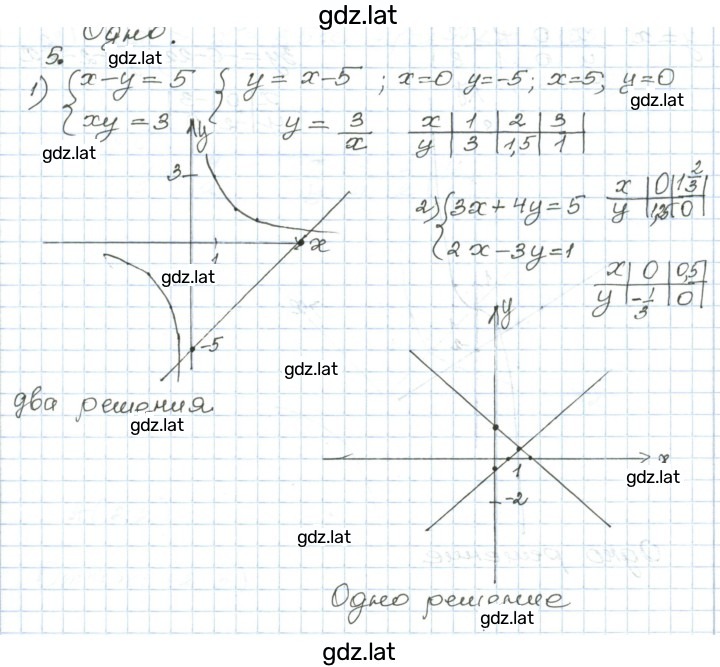 gdz.lat
Одно.
5.
gdz.lat
1) { x-y=5 { y = x-5 ; x=0 y=-5; x=5, y=0
xy=3 y = 3/x
gdz.lat
x | 1 | 2 | 3 |
y | 3 | 1,5 | 1 |
gdz.lat
y
3
x
1
gdz.lat
-5
два решения
gdz.lat
2) { 3x+4y=5
2x-3y=1
x | 0 | 1 2/3 |
y | | 0 |
x | 0 | 0,5 |
y | -1/3 | 0 |
gdz.lat
y
x
1
gdz.lat
-2
gdz.lat
Одно решение
gdz.lat
gdz.lat